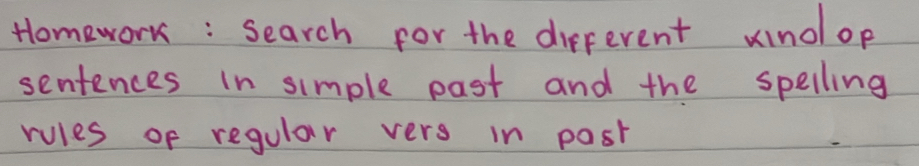 Homework : Search for the different kind of
sentences in simple past and the spelling
rules of regular vers in past